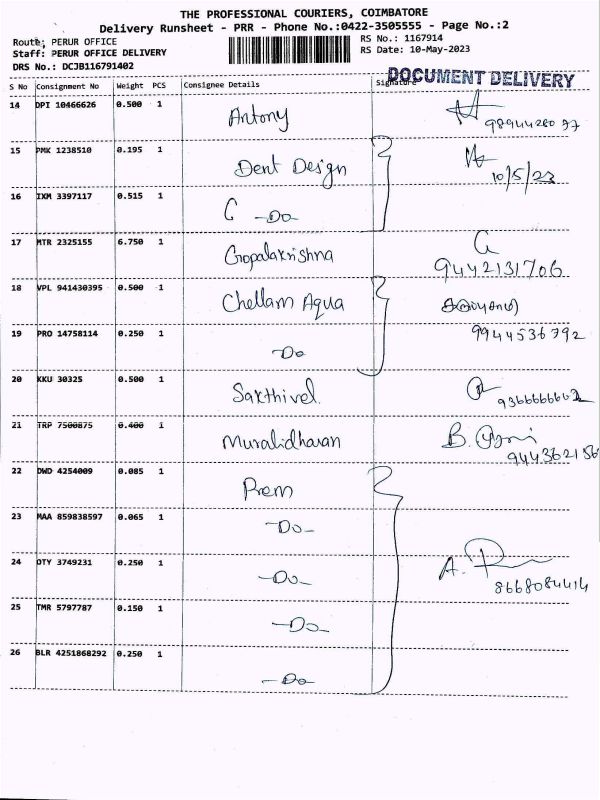 THE PROFESSIONAL COURIERS, COIMBATORE
Delivery Runsheet - PRR - Phone No.:0422-3505555 - Page No.:2
Route: PERUR OFFICE RS No.: 1167914
Staff: PERUR OFFICE DELIVERY RS Date: 10-May-2023
DRS No.: DCJB116791402
DOCUMENT DELIVERY
S No Consignment No Weight PCS Consignee Details Signature
14 DPI 10466626 0.500 1 Antony
15 PMK 1238510 0.195 1 Dent Design
10/5/23
16 IXM 3397117 0.515 1 -Do-
17 MTR 2325155 6.750 1 Gopalakrishna
9442131706
18 VPL 941430395 0.500 1 Chellam Aqua
19 PRO 14758114 0.250 1 Do 9944536792
20 KKU 30325 0.500 1 Sakthivel
21 TRP 7500875 0.400 1 Muralidharan
22 DWD 4254009 0.085 1 Prem
23 MAA 859838597 0.065 1 -Do-
24 OTY 3749231 0.250 1 -Do-
8668084414
25 TMR 5797787 0.150 1 -Do-
26 BLR 4251868292 0.250 1 -Do-